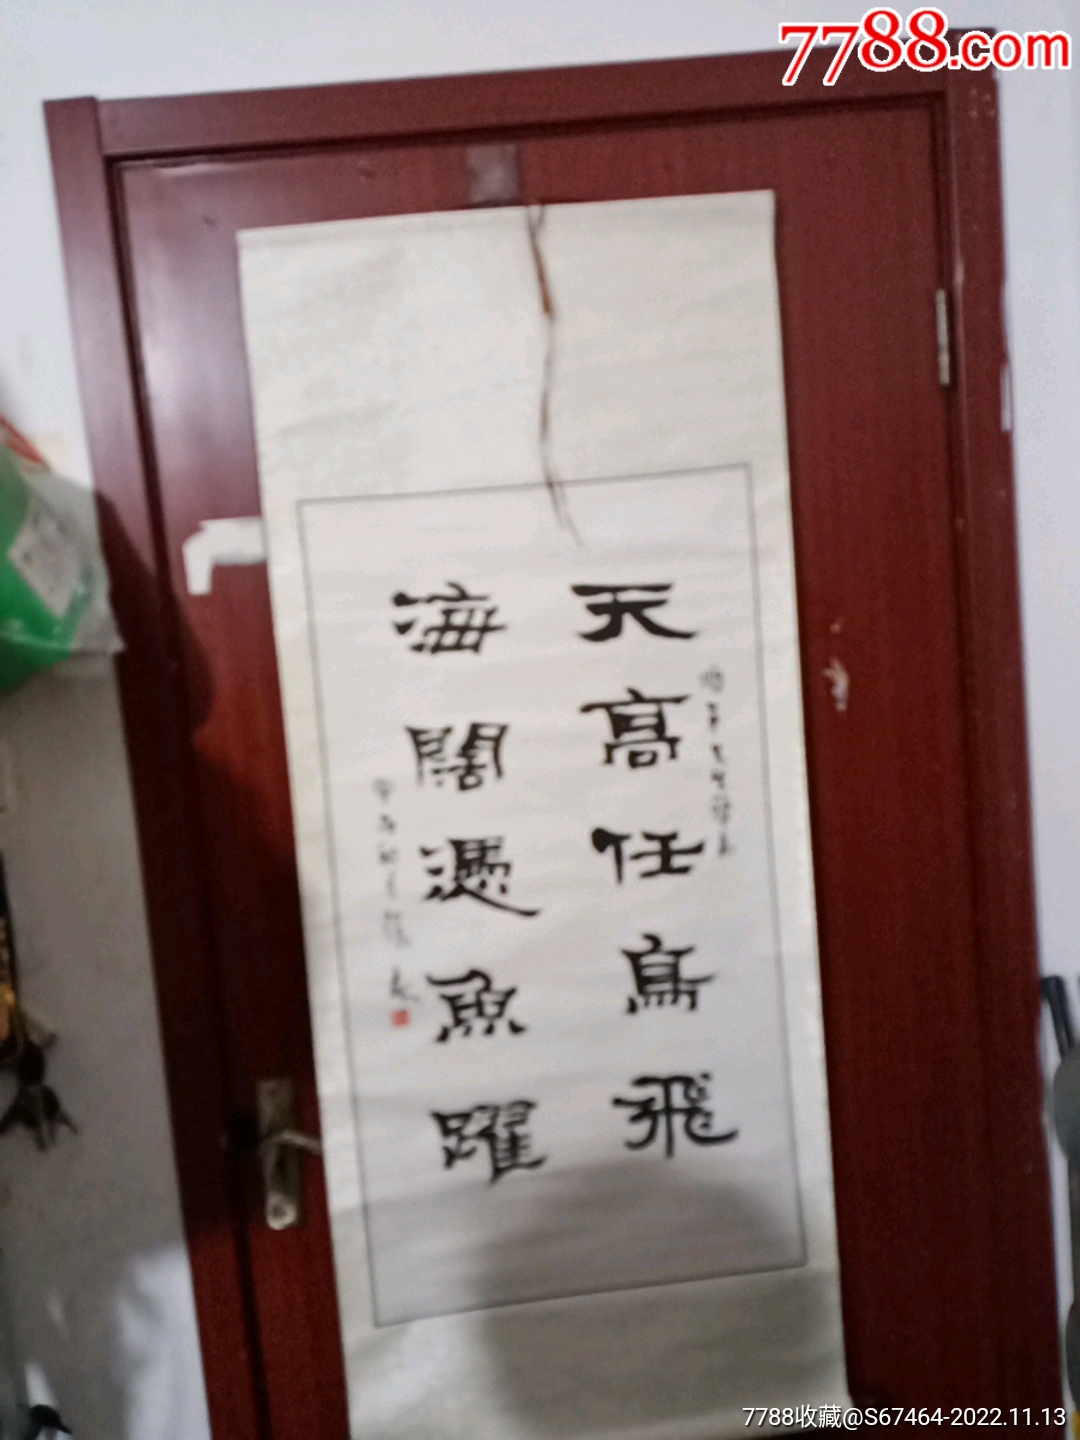 7788.com
天高任鳥飛
海闊憑魚躍
7788收藏@S67464-2022.11.13